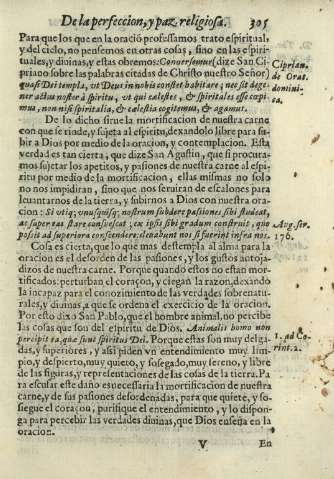 De la perfeccion, y paz religiosa. 305
Para que los que en la oració professamos trato espiritual,
y del cielo, no pensemos en otras cosas, sino en las espiri-
tuales, y diuinas, y estas obremos: Conuersemus (dize San Ci-
priano sobre las palabras citadas de Christo nuestro Señor)
quasi Dei templa, ut Deus in nobis constet habitare; nec sit dege-
ner actus noster à spiritu, ut qui cælestes, & spiritales esse cœpi-
mus, non nisi spiritalia, & cælestia cogitemus, & agamus.
Ciprian.
de Orat.
domini-
ca.
De lo dicho sirue la mortificacion de nuestra carne
con que se rinde, y sujeta al espiritu, dexandolo libre para su-
bir a Dios por medio de la oracion, y contemplacion. Esta
verdad es tan cierta, que dize San Agustin, que si procura-
mos sujetar los apetitos, y passiones de nuestra carne al espi-
ritu por medio de la mortificacion, ellas mismas no solo
no nos impidiran, sino que nos seruiran de escalones para
leuantarnos de la tierra, y subirnos a Dios con nuestra ora-
cion: Si utiq; unusquisq; nostrum subdere passiones sibi studeat,
ac superas stare consuescat; ex ipsis sibi gradum construit, quo
possit ad superiora conscendere: eleuabunt nos si fuerint infra nos.
Aug. ser.
176.
Cosa es cierta, que lo que mas destempla al alma para la
oracion es el desorden de las passiones, y los gustos antoja-
dizos de nuestra carne. Porque quando estos no estan mor-
tificados: perturban el coraçon, y ciegan la razon, dexando
la incapaz para el conocimiento de las verdades sobrenatu-
rales, y diuinas, a que se ordena el exercicio de la oracion.
Por esto dixo San Pablo, que el hombre animal, no percibe
las cosas que son del espiritu de Dios. Animalis homo non
percipit ea, quæ sunt spiritus Dei. Porque estas son muy delga-
das, y superiores, y assi piden vn entendimiento muy lim-
pio, y despierto, muy quieto, y sosegado, muy sereno, y libre
de las figuras, y representaciones de las cosas de la tierra. Pa
ra escusar este daño es necessaria la mortificacion de nuestra
carne, y de sus passiones desordenadas, para que quiete, y so-
siegue el coraçon, purifique el entendimiento, y lo dispon-
ga para percebir las verdades diuinas, que Dios enseña en la
oracion.
1. ad Co-
rint. 2.
V En